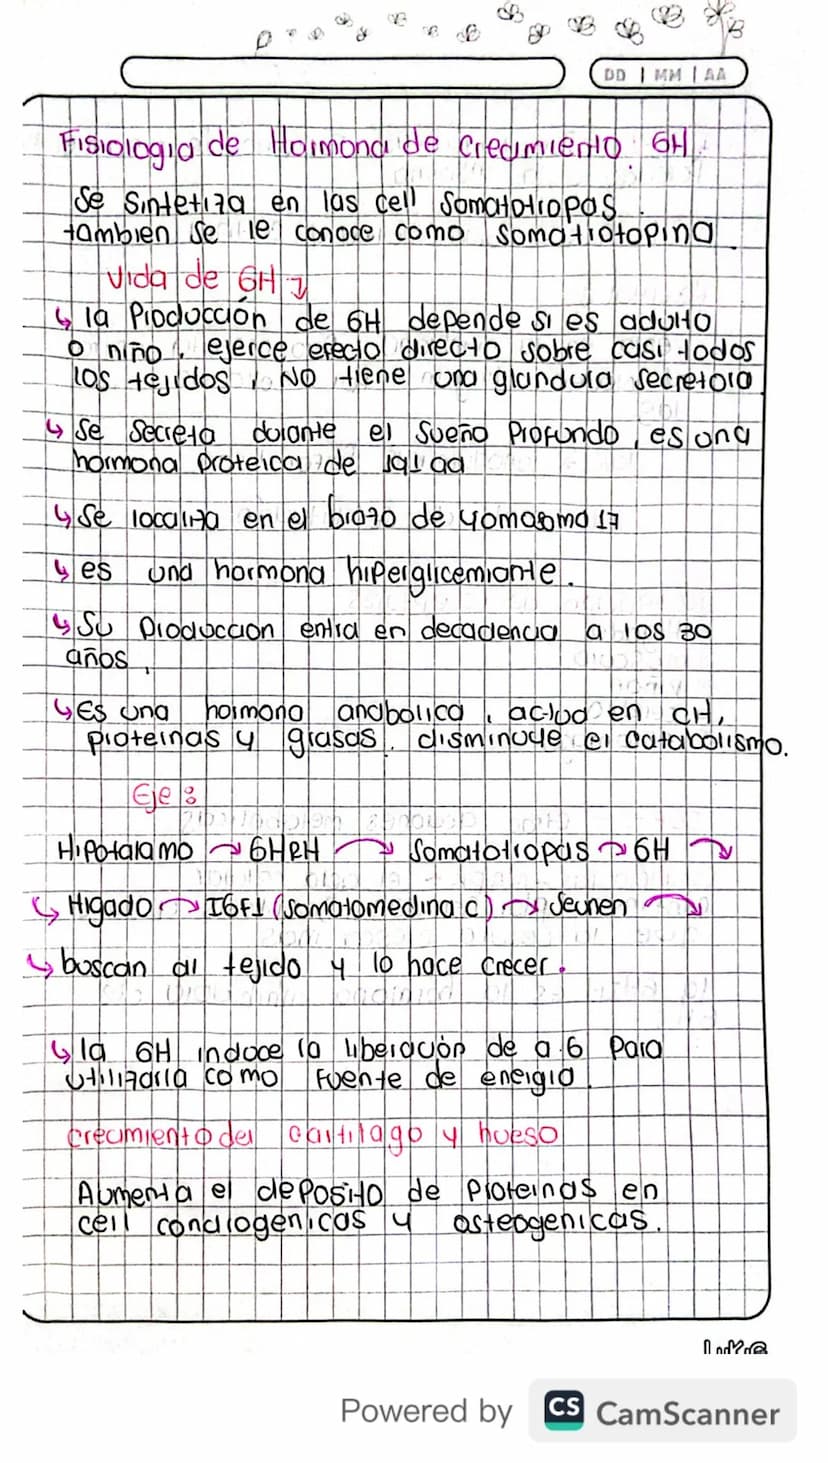 DD | MM | AA
Fisiologia de Hormona de crecimiento GH.
Se sintetiza en las cell somatotropas.
tambien se le conoce como somatrotopina
Vida de GH
la Producción de GH depende si es adulto
o niño, ejerce efecto directo sobre casi todos
los tejidos, NO tiene una glandula secretora
Se secreta durante el sueño profundo, es una
hormona proteica de 191 aa
Se localiza en el brazo de 17
es una hormona hiperglicemiante.
Su produccion entra en decadencia a los 30
años,
Es una hormona anabolica, actua en CH,
proteinas y grasas. disminuye el catabolismo.
Eje:
Hipotalamo → GHRH → Somatotropas → GH →
Higado → IGF1 (somatomedina c) → Se unen →
buscan al tejido y lo hace crecer.
la GH induce la liberación de a.G para
utilizarla como fuente de energia
crecimiento del cartilago y hueso
Aumenta el deposito de proteinas en
cell condrogenicas y osteogenicas.
Powered by CS CamScanner